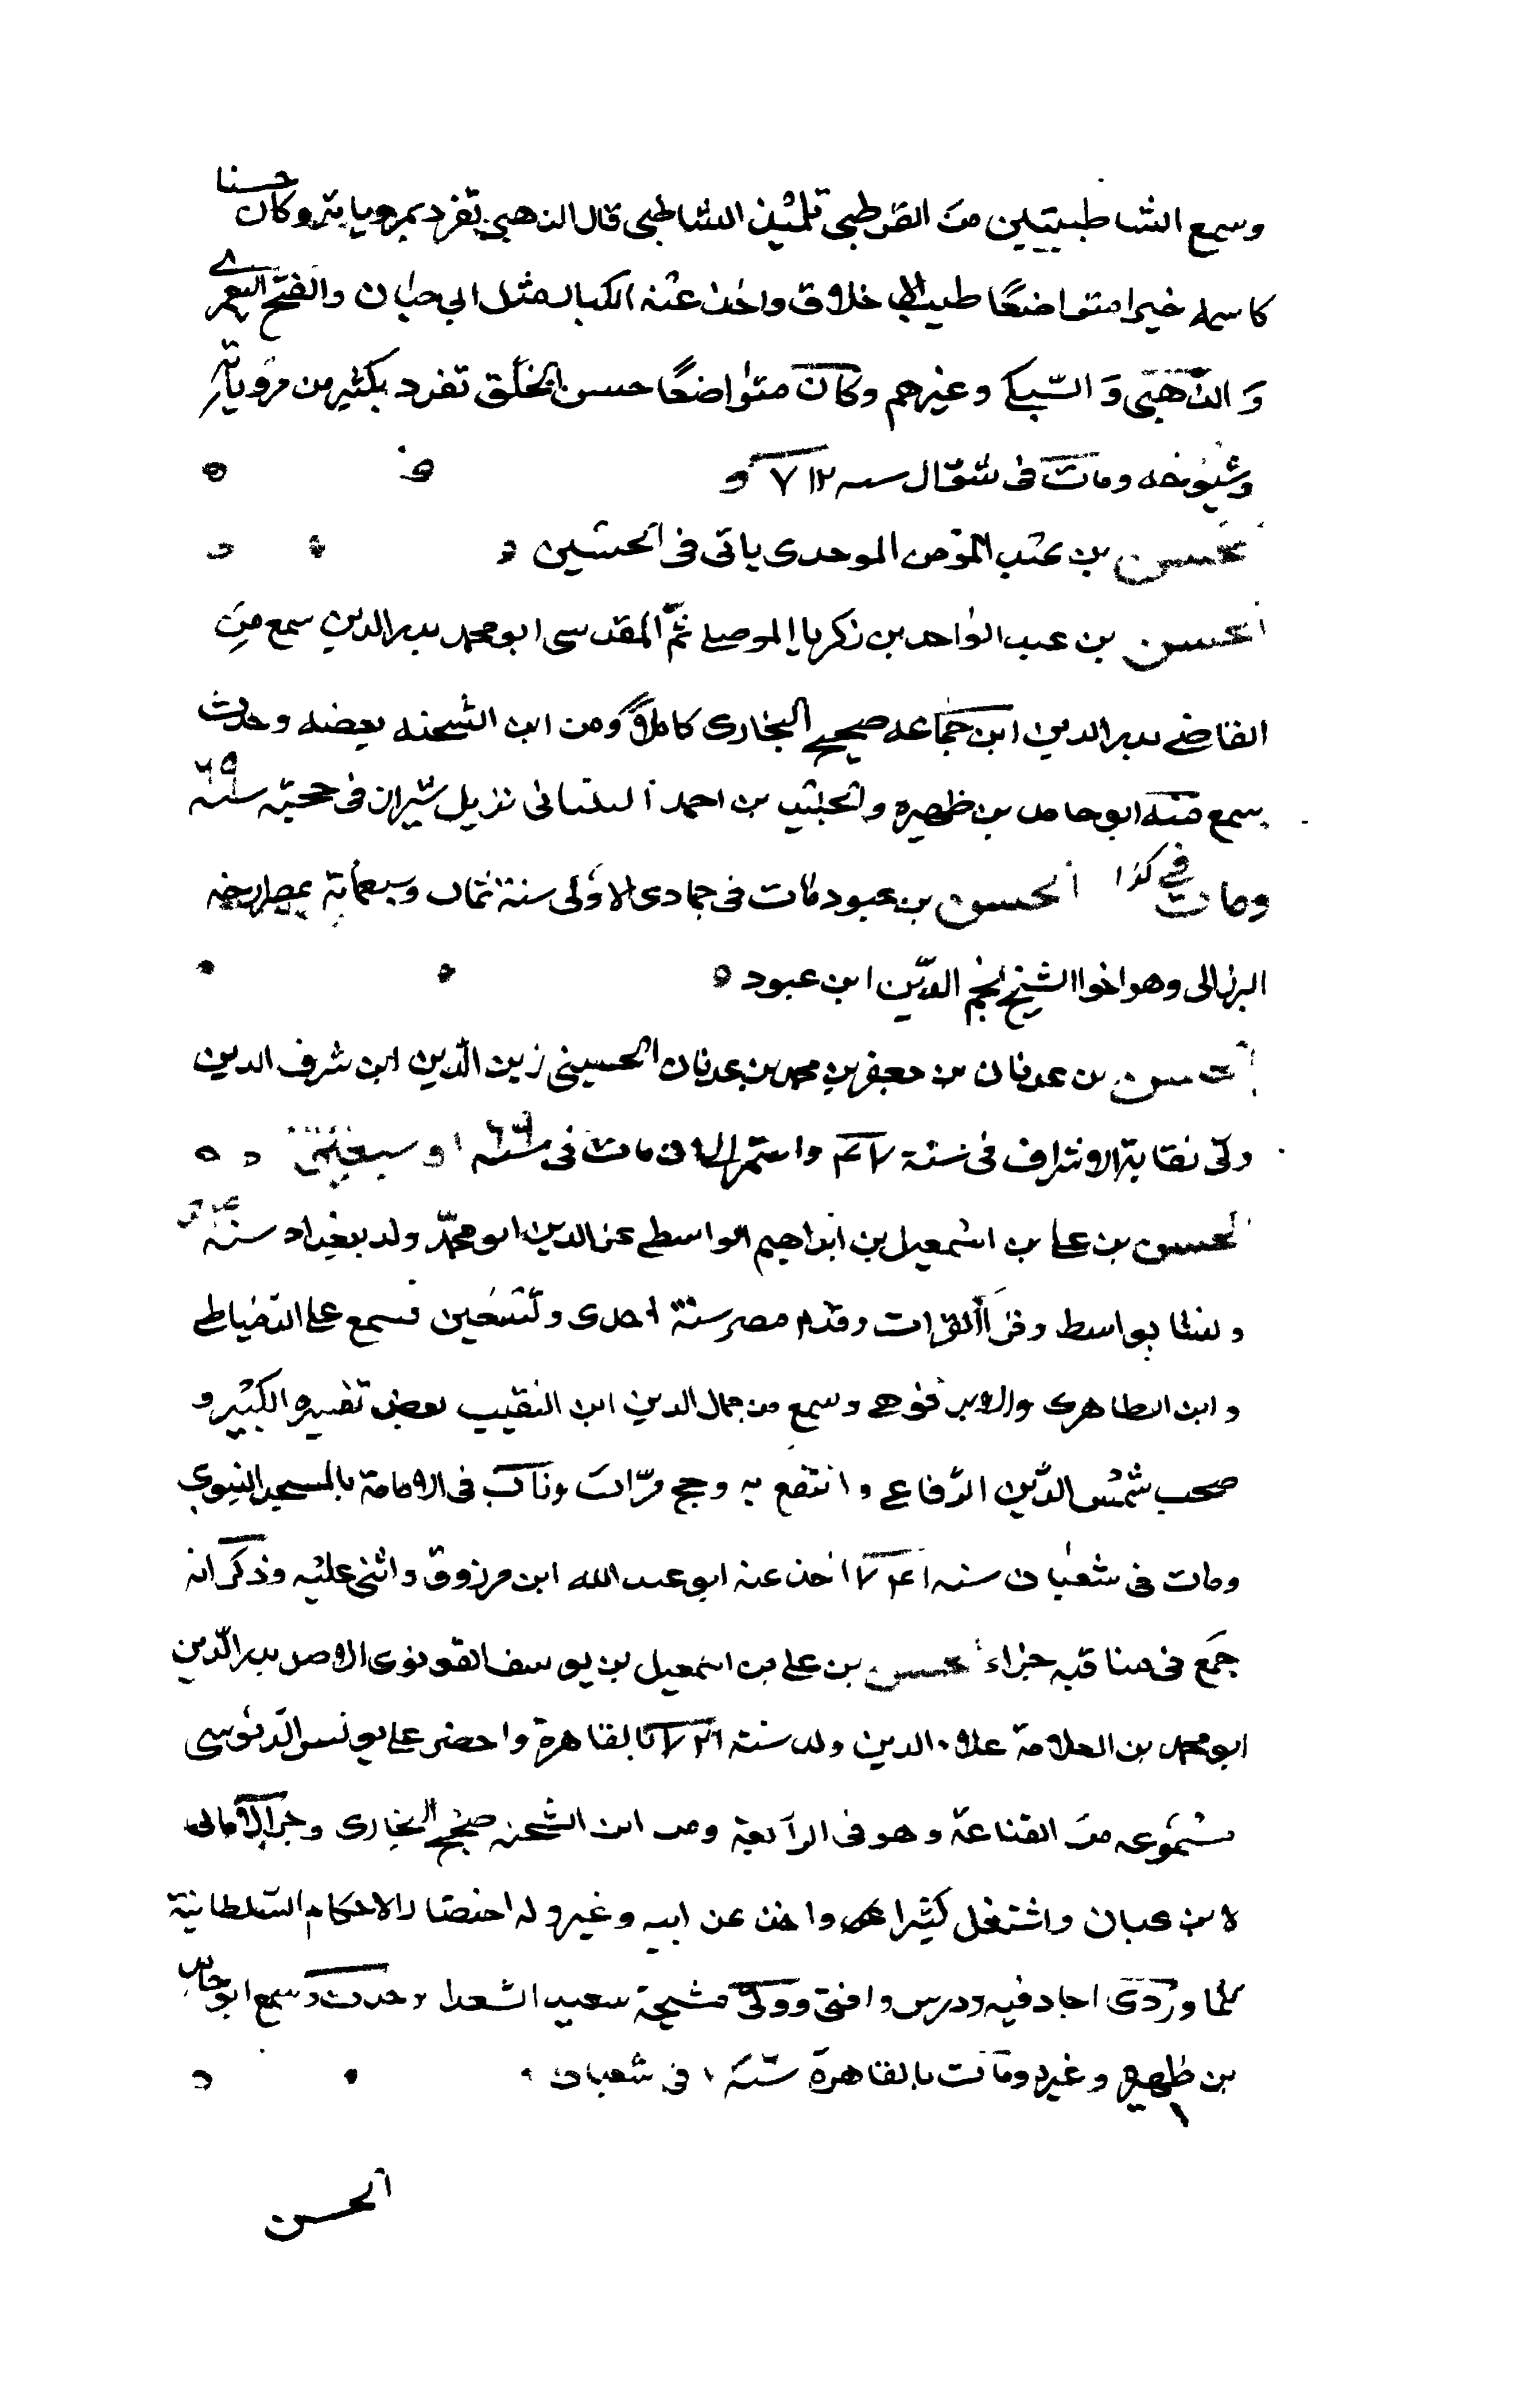 وسمع الشاطبيتين من القرطبي تلميذ الشاطبي قال الذهبي تفرد بمروياته وكان حسنا
كاسمه خيرا متواضعًا طيب الاخلاق واخذ عنه الكبار مثل ابي حيان والفتح اليعمري
وَ الذّهبي وَ السّبكي وغيرهم وكان متواضعًا حسن الخلق تفرد بكثير من مروياته
وشيوخه ومات في شوّال سنه ٧١٢
الحسن بن عبد المؤمن الموحدي ياتي في الحسين
الحسن بن عبد الواحد بن زكريا الموصلي ثمّ المقدسي ابو محمد بدر الدين سمع من
القاضي بدر الدين ابن جماعه صحيح البخاري كاملاً ومن ابن الشحنه بعضه وحدث
سمع منه ابو حامد بن ظهيره والجنيد بن احمد البليانى نزيل شيراز في حجته سنة ٦٩
ومات في كذا الحسن بن عبود مات في جمادى الاولى سنة ثمان وسبعماية بمصر ارخه
البرزالى وهو اخوا الشيخ نجم الدّين ابن عبود
الحسن بن عدنان بن جعفر بن محمد بن عدنان الحسيني زين الدّين ابن شرف الدين
ولي نقابة الاشراف في سنة واستمر الى ان مات في سنة او سبعين
الحسن بن علي بن اسمعيل بن ابراهيم الواسطي عز الدين ابو محمّد ولد ببغداد سنة
ونشا بواسط وقرأ القرات وقدم مصر سنة احدى وتسعين فسمع على الدمياطي
وابن الظاهري والابرقوهي وسمع من جمال الدين ابن النقيب بعض تفسيره الكبير و
صحب شمس الدّين الرّفاعي وانتفع به وحج مرّات وناب في الامامة بالمسجد النبوي
ومات في شعبان سنه ٧٤١ اخذ عنه ابو عبد الله ابن مرزوق واثنى عليه وذكر انه
جمع في مناقبه جزاء حسن بن علي بن اسمعيل بن يوسف القونوى الاصل بدر الدّين
ابو محمد بن العلامة علاء الدين ولد سنة ٧٢١ بالقاهرة واحضر على يونس الدبوسي
مسموعه من القناعة وهو في الرابعة ومن ابن الشحنه صحيح البخاري وجزا الامالى
لابن عبان واشتغل كثيرا واخذ عن ابيه وغيره وله اختصار الاحكام السّلطانية
للماوردي اجاد فيه ودرس وافتى وولي مشيخة سعيد السّعدا وحدث وسمع ابو حامد
بن ظهيره وغيره ومات بالقاهرة سنة في شعبان
الحسن